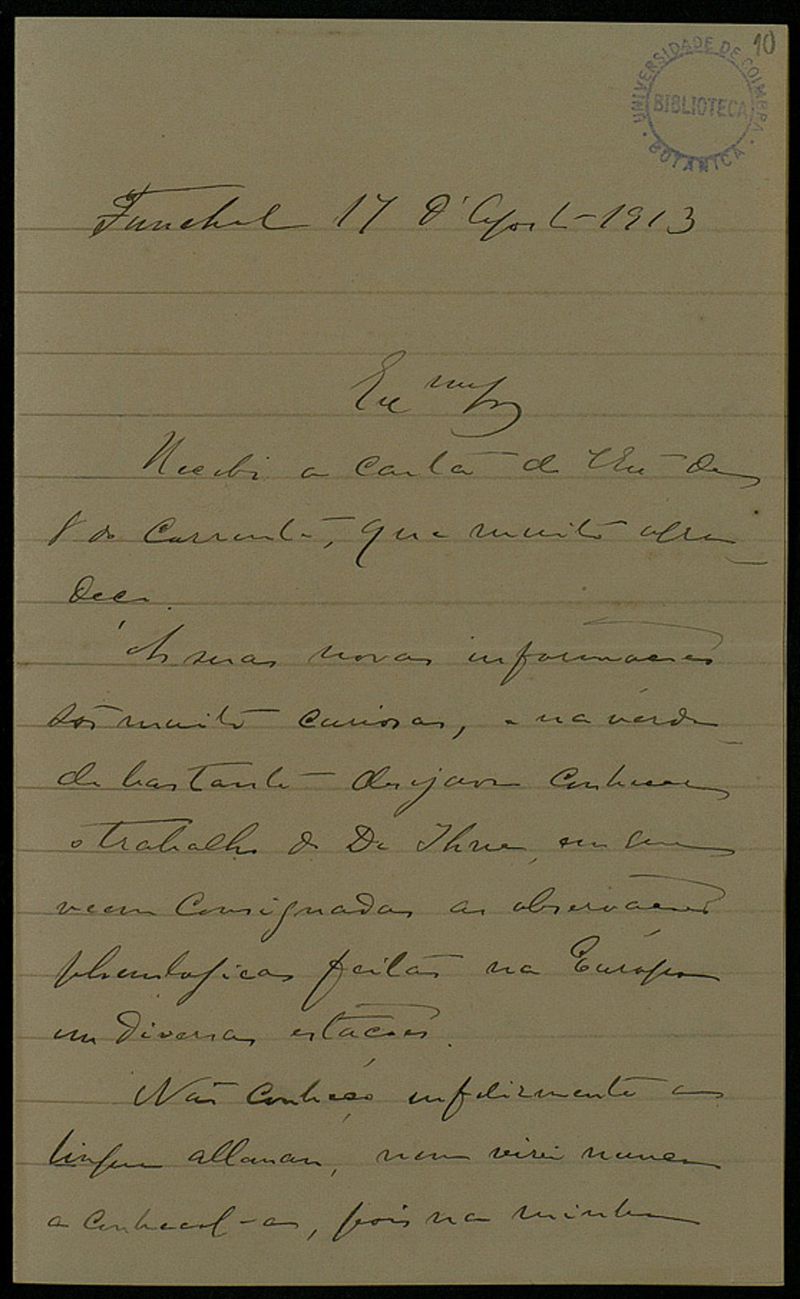 10
UNIVERSIDADE DE COIMBRA
BIBLIOTECA
BOTANICA
Funchal 17 d'Agosto 1913
Exmo Sr
Recebi a carta de V Exa de
8 do corrente, que muito agra-
deço.
As suas novas informações
são muito curiosas, e na verda-
de bastante desejava conhecer
o trabalho do Dr Ihne, em que
veem consignadas as observações
phenologicas feitas na Europa
em diversas estações.
Não conheço infelizmente a
lingua allaman, nem virei nunca
a conhecel-a, pois na minha